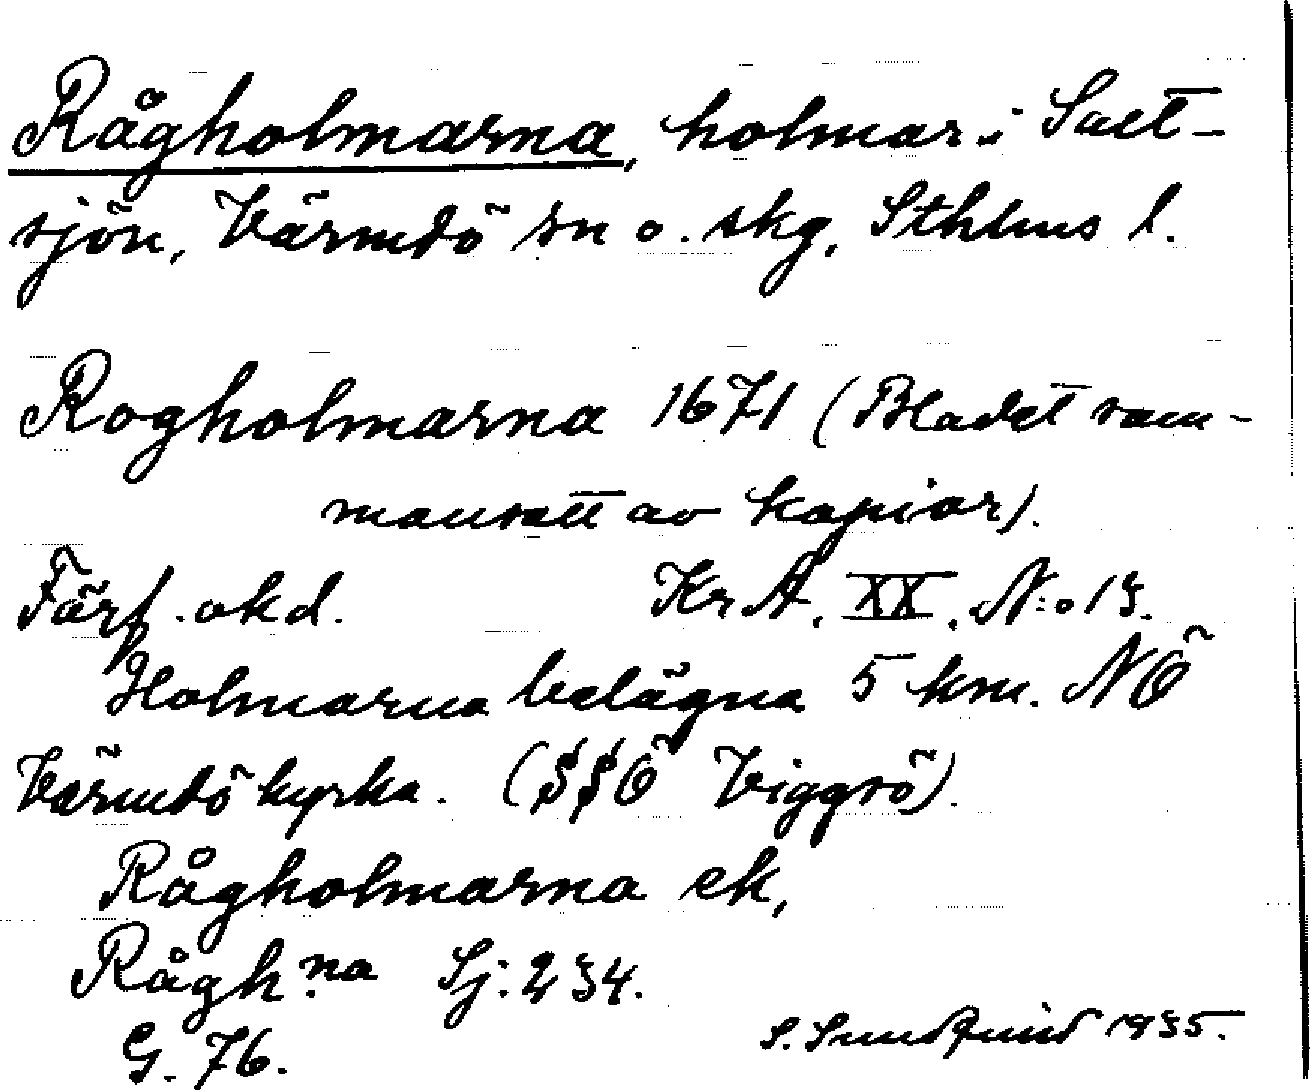 Rågholmarna, holmar i Salt-
sjön, Värmdö sn o. skg, Sthlms l.
Rogholmarna 1671 (Bladet sam-
mansatt av kopior).
Förf. okd. Kr A. XX. N:o 13.
Holmarna belägna 5 km. NÖ
Värmdö kyrka. (SSÖ Viggsö).
Rågholmarna ek,
Rågh:na Sj: 234.
G. 76.
S. Sundquist 1935.